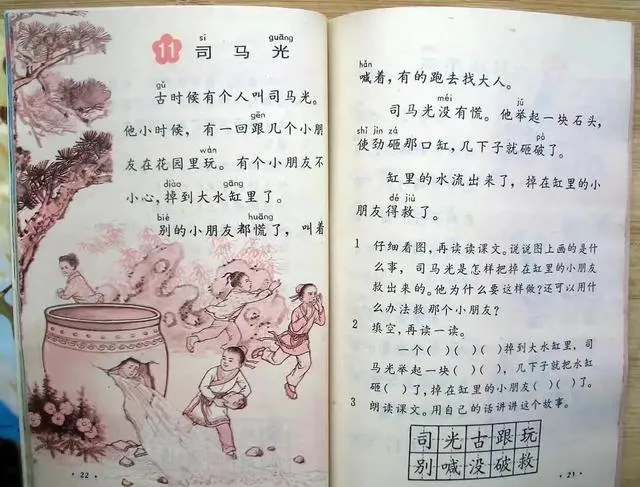 sī guāng
11 司马光
gǔ
古时候有个人叫司马光。
gēn
他小时候，有一回跟几个小朋
wán
友在花园里玩。有个小朋友不
diào gāng
小心，掉到大水缸里了。
bié huāng
别的小朋友都慌了，叫着
22
hǎn
喊着，有的跑去找大人。
méi jǔ
司马光没有慌。他举起一块石头，
shǐ jìn zá pò
使劲砸那口缸，几下子就砸破了。
缸里的水流出来了，掉在缸里的小
dé jiù
朋友得救了。
1 仔细看图，再读读课文。说说图上画的是什
么事，司马光是怎样把掉在缸里的小朋友
救出来的。他为什么要这样做？还可以用什
么办法救那个小朋友？
2 填空，再读一读。
一个( )( )( )掉到大水缸里，司
马光举起一块( )( )，几下子就把水缸
砸( )了，掉在缸里的小朋友( )( )了。
3 朗读课文。用自己的话讲讲这个故事。
司光古跟玩
别喊没破救
23